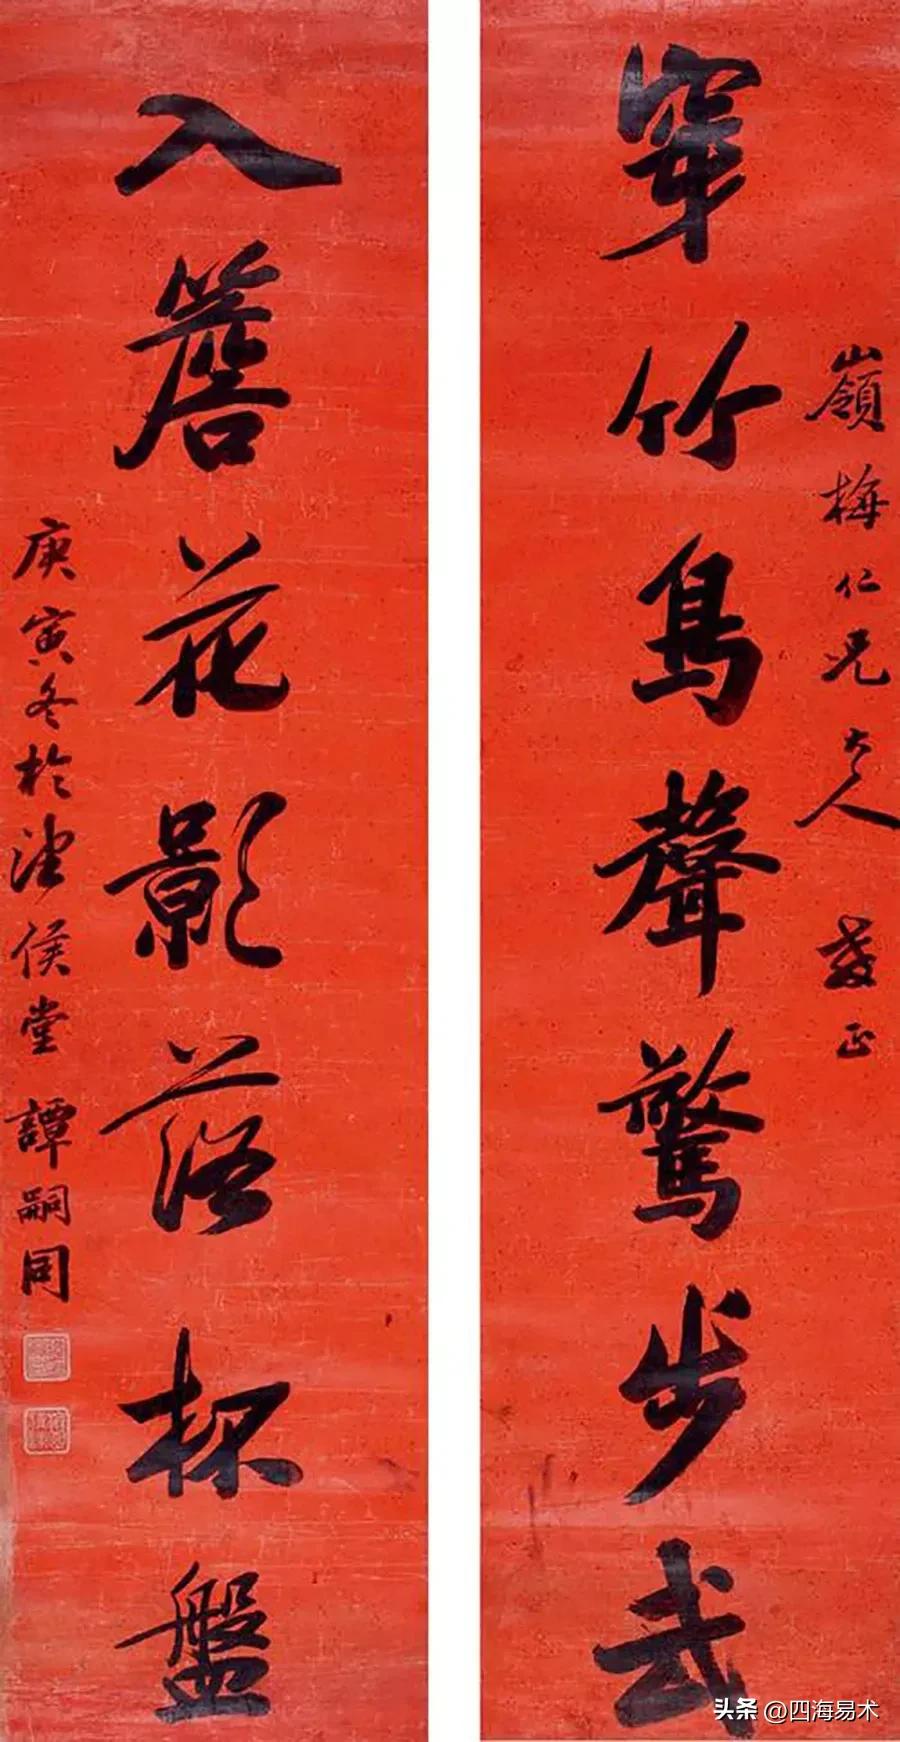 嶺梅仁兄大人 教正
穿竹鳥聲驚步武
入簷花影落杯盤
庚寅冬於侯堂 譚嗣同
头条 @四海易术